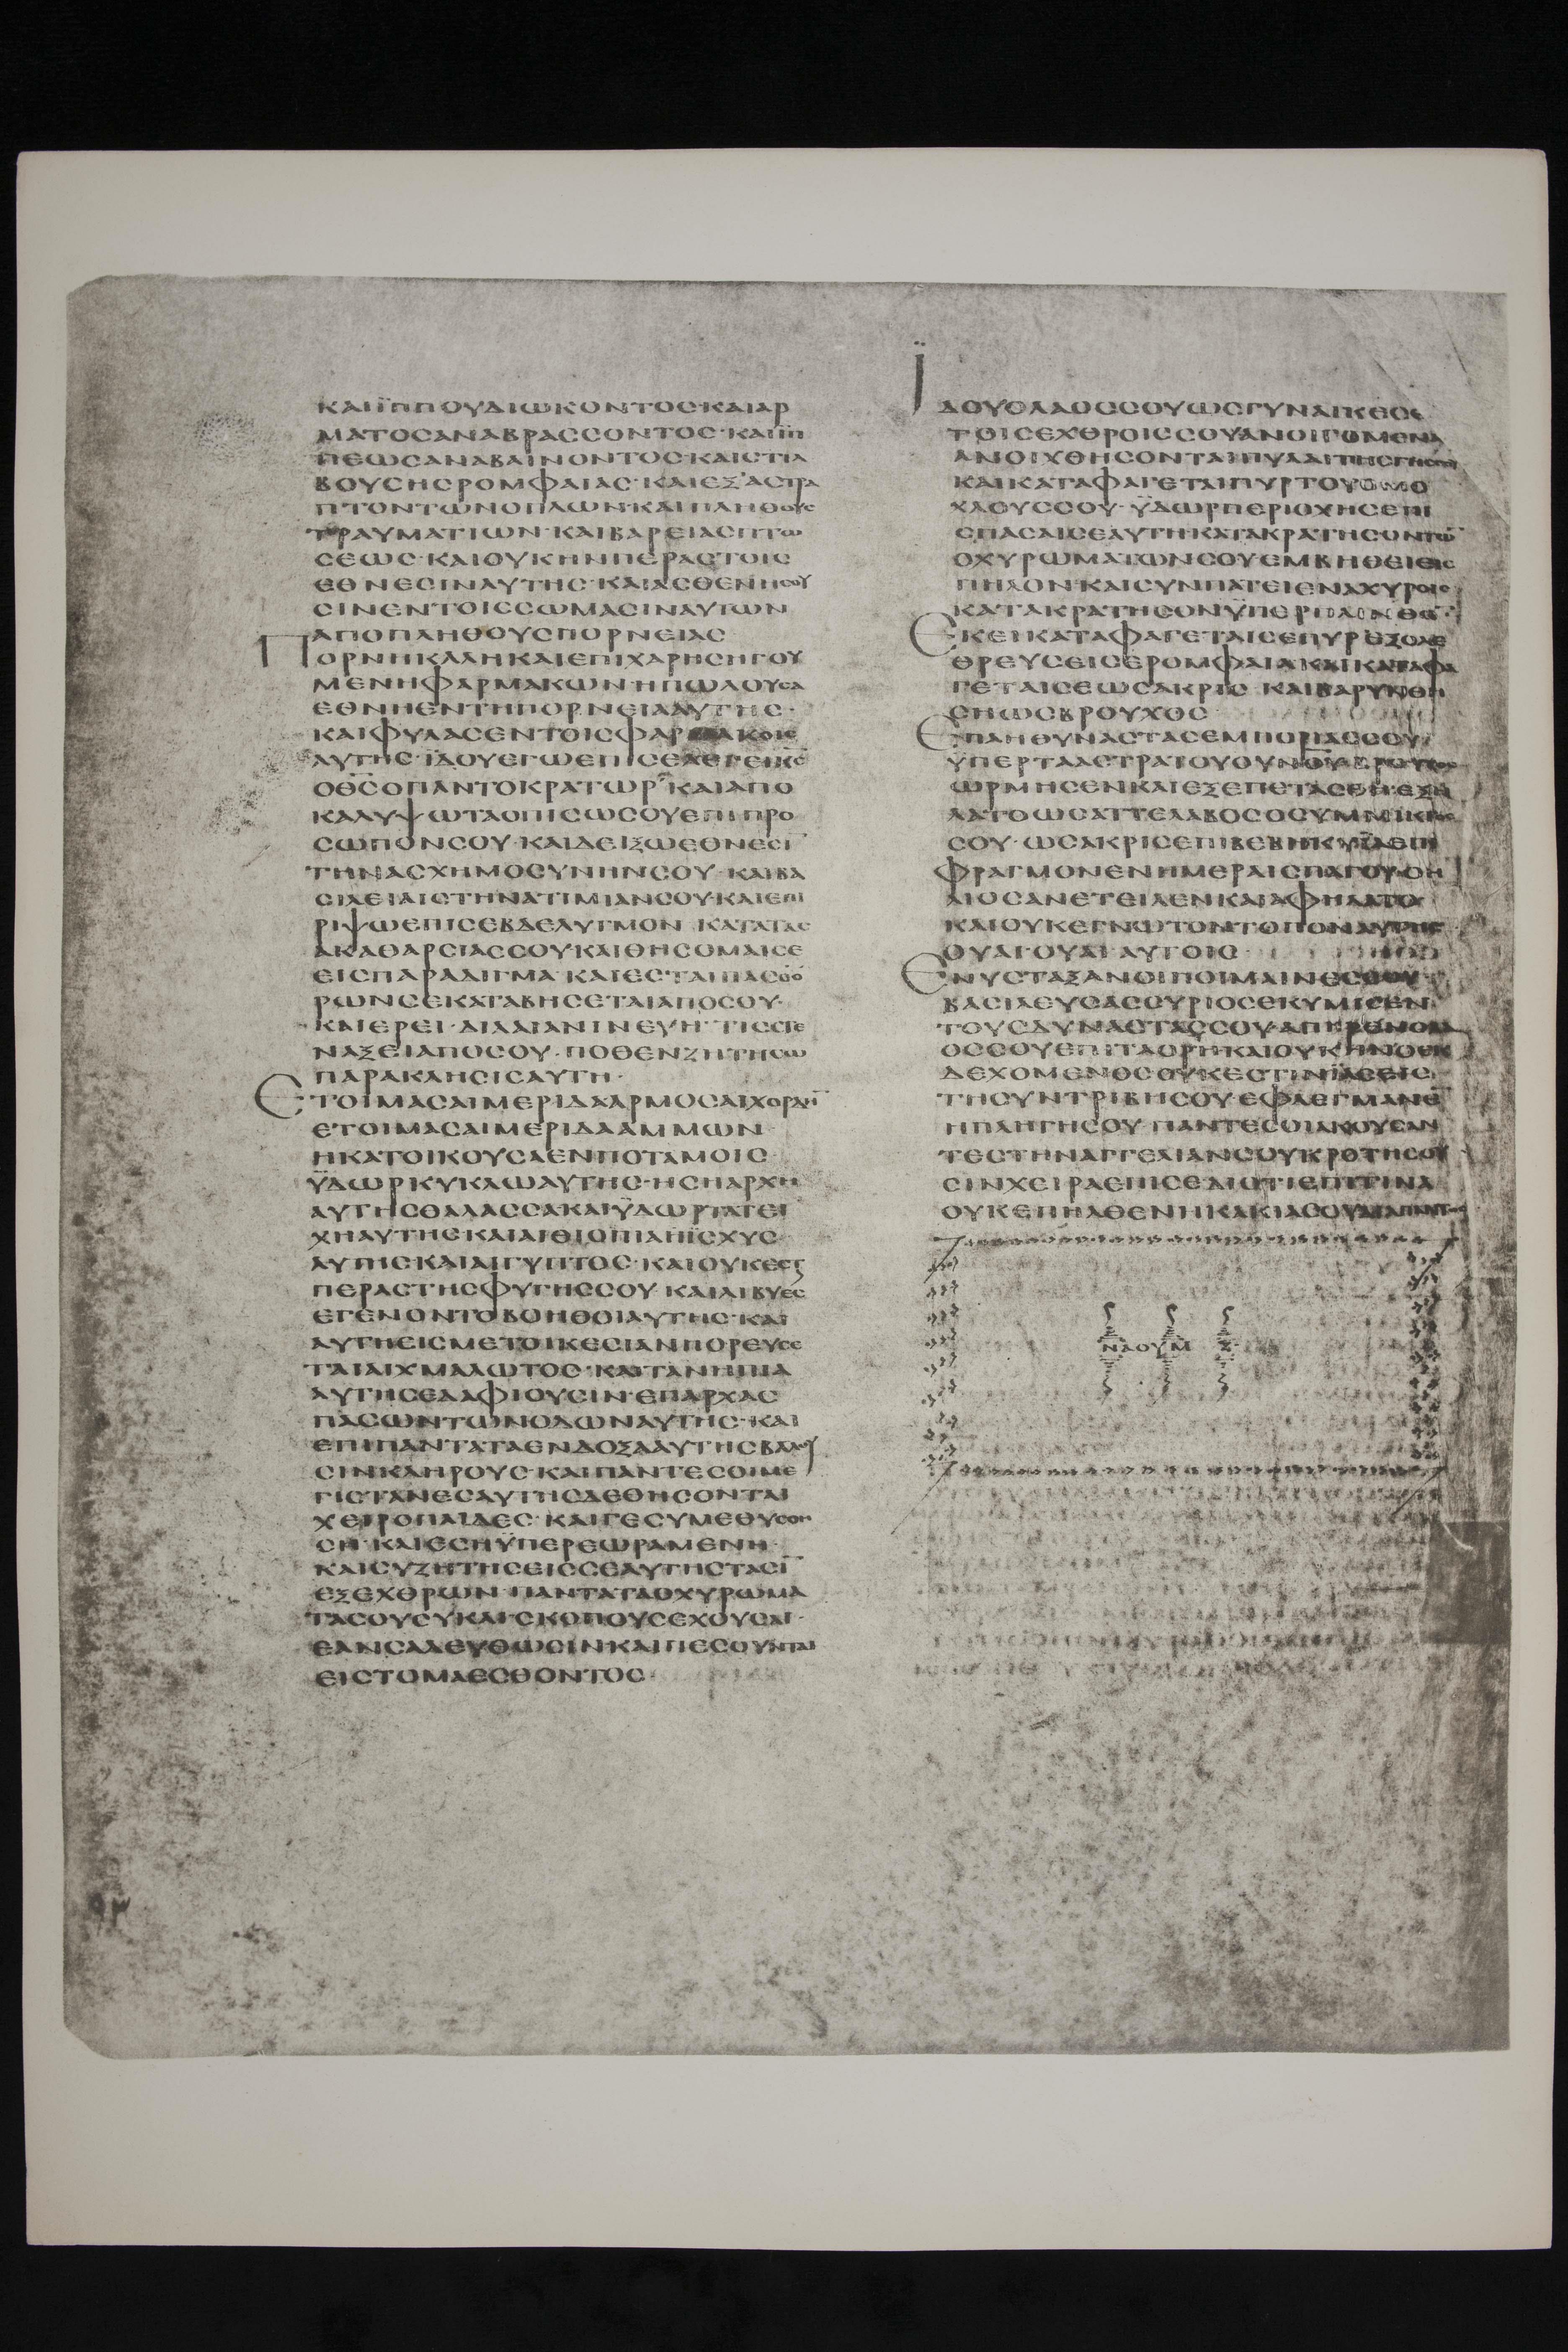 ΚΑΙΪΠΠΟΥΔΙΩΚΟΝΤΟΣ·ΚΑΙΑΡ
ΜΑΤΟΣΑΝΑΒΡΑΣΣΟΝΤΟΣ·ΚΑΙΪΠ
ΠΕΩΣΑΝΑΒΑΙΝΟΝΤΟΣ·ΚΑΙΣΤΙΛ
ΒΟΥΣΗΣΡΟΜΦΑΙΑΣ·ΚΑΙΕΞΑΣΤΡΑ
ΠΤΟΝΤΩΝΟΠΛΩΝ·ΚΑΙΠΛΗΘΟΥΣ
ΤΡΑΥΜΑΤΙΩΝ·ΚΑΙΒΑΡΕΙΑΣΠΤΩ
ΣΕΩΣ·ΚΑΙΟΥΚΗΝΠΕΡΑΣΤΟΙΣ
ΕΘΝΕΣΙΝΑΥΤΗΣ·ΚΑΙΑΣΘΕΝΗΣΟΥ
ΣΙΝΕΝΤΟΙΣΣΩΜΑΣΙΝΑΥΤΩΝ
ΑΠΟΠΛΗΘΟΥΣΠΟΡΝΕΙΑΣ
ΠΟΡΝΗΚΑΛΗΚΑΙΕΠΙΧΑΡΗΣΗΓΟΥ
ΜΕΝΗΦΑΡΜΑΚΩΝ·ΗΠΩΛΟΥΣΑ
ΕΘΝΗΕΝΤΗΠΟΡΝΕΙΑΑΥΤΗΣ·
ΚΑΙΦΥΛΑΣΕΝΤΟΙΣΦΑΡΜΑΚΟΙΣ
ΑΥΤΗΣ·ΪΔΟΥΕΓΩΕΠΙΣΕΛΕΓΕΙΚ̅Σ̅
ΟΘ̅Σ̅ΟΠΑΝΤΟΚΡΑΤΩΡ·ΚΑΙΑΠΟ
ΚΑΛΥΨΩΤΑΟΠΙΣΩΣΟΥΕΠΙΠΡΟ
ΣΩΠΟΝΣΟΥ·ΚΑΙΔΕΙΞΩΕΘΝΕΣΙ̅
ΤΗΝΑΣΧΗΜΟΣΥΝΗΝΣΟΥ·ΚΑΙΒΑ
ΣΙΛΕΙΑΙΣΤΗΝΑΤΙΜΙΑΝΣΟΥ·ΚΑΙΕΠΙ
ΡΙΨΩΕΠΙΣΕΒΔΕΛΥΓΜΟΝ·ΚΑΤΑΤΑΣ
ΑΚΑΘΑΡΣΙΑΣΣΟΥΚΑΙΘΗΣΟΜΑΙΣΕ
ΕΙΣΠΑΡΑΔΙΓΜΑ·ΚΑΙΕΣΤΑΙΠΑΣΟΟ
ΡΩΝΣΕΚΑΤΑΒΗΣΕΤΑΙΑΠΟΣΟΥ·
ΚΑΙΕΡΕΙ·ΔΙΛΑΙΑΝΙΝΕΥΗ·ΤΙΣΣΤΕ
ΝΑΞΕΙΑΠΟΣΟΥ·ΠΟΘΕΝΖΗΤΗΣΩ
ΠΑΡΑΚΛΗΣΙΣΑΥΤΗ·
ΕΤΟΙΜΑΣΑΙΜΕΡΙΔΑΑΡΜΟΣΑΙΧΟΡΔΗ̅
ΕΤΟΙΜΑΣΑΙΜΕΡΙΔΑΑΜΜΩΝ·
ΗΚΑΤΟΙΚΟΥΣΑΕΝΠΟΤΑΜΟΙΣ·
ΫΔΩΡΚΥΚΛΩΑΥΤΗΣ·ΗΣΗΑΡΧΗ
ΑΥΤΗΣΘΑΛΑΣΣΑΚΑΙΫΔΩΡΤΑΤΕΙ
ΧΗΑΥΤΗΣΚΑΙΑΙΘΙΟΠΙΑΗΪΣΧΥΣ
ΑΥΤΗΣΚΑΙΑΙΓΥΠΤΟΣ·ΚΑΙΟΥΚΕΣΤ
ΠΕΡΑΣΤΗΣΦΥΓΗΣΣΟΥ·ΚΑΙΛΙΒΥΕΣ
ΕΓΕΝΟΝΤΟΒΟΗΘΟΙΑΥΤΗΣ·ΚΑΙ
ΑΥΤΗΕΙΣΜΕΤΟΙΚΕΣΙΑΝΠΟΡΕΥΣΕ
ΤΑΙΑΙΧΜΑΛΩΤΟΣ·ΚΑΙΤΑΝΗΠΙΑ
ΑΥΤΗΣΕΔΑΦΙΟΥΣΙΝ·ΕΠΑΡΧΑΣ
ΠΑΣΩΝΤΩΝΟΔΩΝΑΥΤΗΣ·ΚΑΙ
ΕΠΙΠΑΝΤΑΤΑΕΝΔΟΞΑΑΥΤΗΣΒΑΛΟΥ
ΣΙΝΚΛΗΡΟΥΣ·ΚΑΙΠΑΝΤΕΣΟΙΜΕ
ΓΙΣΤΑΝΕΣΑΥΤΗΣΔΕΘΗΣΟΝΤΑΙ
ΧΕΙΡΟΠΑΙΔΕΣ·ΚΑΙΓΕΣΥΜΕΘΥΣΘΗ
ΣΗ·ΚΑΙΕΣΗΫΠΕΡΕΩΡΑΜΕΝΗ·
ΚΑΙΣΥΖΗΤΗΣΕΙΣΣΕΑΥΤΗΣΤΑΣΙ̅
ΕΞΕΧΘΡΩΝ·ΠΑΝΤΑΤΑΟΧΥΡΩΜΑ
ΤΑΣΟΥΣΥΚΑΙΣΚΟΠΟΥΣΕΧΟΥΣΑΙ·
ΕΑΝΣΑΛΕΥΘΩΣΙΝΚΑΙΠΕΣΟΥΝΤΑΙ
ΕΙΣΤΟΜΑΕΣΘΟΝΤΟΣ·
ΪΔΟΥΟΛΑΟΣΣΟΥΩΣΓΥΝΑΙΚΕΣΕ
ΤΟΙΣΕΧΘΡΟΙΣΣΟΥΑΝΟΙΓΟΜΕΝΑ
ΑΝΟΙΧΘΗΣΟΝΤΑΙΠΥΛΑΙΤΗΣΓΗΣΣΟΥ
ΚΑΙΚΑΤΑΦΑΓΕΤΑΙΠΥΡΤΟΥΣΜΟ
ΧΛΟΥΣΣΟΥ·ΫΔΩΡΠΕΡΙΟΧΗΣΕΠΙ
ΣΠΑΣΑΙΣΕΑΥΤΗΚΑΤΑΚΡΑΤΗΣΟΝΤΩ̅
ΟΧΥΡΩΜΑΤΩΝΣΟΥΕΜΒΗΘΕΙΕΙΣ
ΠΗΛΟΝ·ΚΑΙΣΥΝΠΑΤΕΙΕΝΑΧΥΡΟΙΣ
ΚΑΤΑΚΡΑΤΗΣΟΝΫΠΕΡΠΛΙΝΘΟ̅·
ΕΚΕΙΚΑΤΑΦΑΓΕΤΑΙΣΕΠΥΡΕΞΟΛΕ
ΘΡΕΥΣΕΙΣΕΡΟΜΦΑΙΑΚΑΙΚΑΤΑΦΑ
ΓΕΤΑΙΣΕΩΣΑΚΡΙΣ·ΚΑΙΒΑΡΥΝΘΗ
ΣΗΩΣΒΡΟΥΧΟΣ
ΕΠΛΗΘΥΝΑΣΤΑΣΕΜΠΟΡΙΑΣΣΟΥ
ΫΠΕΡΤΑΑΣΤΡΑΤΟΥΟΥΝΟΥΒΡΟΥΧΟΣ
ΩΡΜΗΣΕΝΚΑΙΕΞΕΠΕΤΑΣΕΝ·ΕΞΗ
ΛΑΤΟΩΣΑΤΤΕΛΑΒΟΣΟΣΥΜΜΙΚΤΟΣ
ΣΟΥ·ΩΣΑΚΡΙΣΕΠΙΒΕΒΗΚΥΪΑΕΠΙ
ΦΡΑΓΜΟΝΕΝΗΜΕΡΑΙΣΠΑΓΟΥ·ΟΗ
ΛΙΟΣΑΝΕΤΕΙΛΕΝΚΑΙΑΦΗΛΑΤΟ
ΚΑΙΟΥΚΕΓΝΩΤΟΝΤΟΠΟΝΑΥΤΗΣ
ΟΥΑΙΟΥΑΙ·ΑΥΤΟΙΣ
ΕΝΥΣΤΑΞΑΝΟΙΠΟΙΜΑΙΝΕΣΣΟΥ
ΒΑΣΙΛΕΥΣΑΣΣΥΡΙΟΣΕΚΥΜΙΣΕΝ
ΤΟΥΣΔΥΝΑΣΤΑΣΣΟΥ·ΑΠΗΡΕΝΟΛΑ
ΟΣΣΟΥΕΠΙΤΑΟΡΗΚΑΙΟΥΚΗΝΟΕΚ
ΔΕΧΟΜΕΝΟΣΟΥΚΕΣΤΙΝΪΑΣΕΙΣ
ΤΗΣΥΝΤΡΙΒΗΣΟΥ·ΕΦΛΕΓΜΑΝΕ̅
ΗΠΛΗΓΗΣΟΥ·ΠΑΝΤΕΣΟΙΑΚΟΥΣΑΝ
ΤΕΣΤΗΝΑΓΓΕΛΙΑΝΣΟΥΚΡΟΤΗΣΟΥ
ΣΙΝΧΕΙΡΑΕΠΙΣΕ·ΔΙΟΤΙΕΠΙΤΙΝΑ
ΟΥΚΕΠΗΛΘΕΝΗΚΑΚΙΑΣΟΥΔΙΑΠΑΝΤΟΣ
ΝΑΟΥΜ Ζ·